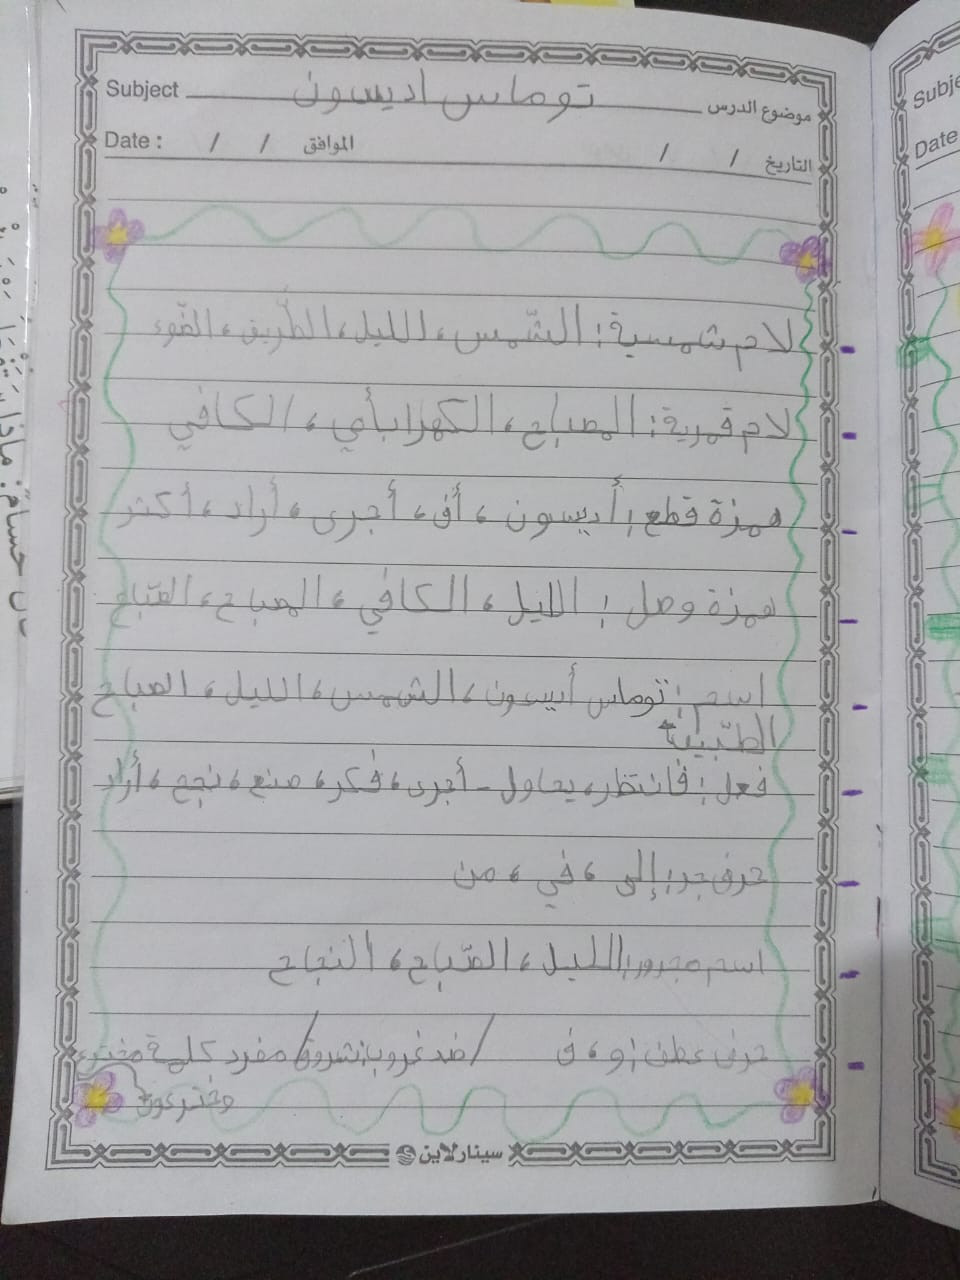 Subject توماس اديسون موضوع الدرس
Date : / / الموافق / / التاريخ
لام شمسية : الشّمس ، الليل ، الطّريق ، الضّوء
لام قمرية : المصباح ، الكهرابأي ، الكافي
همزة قطع : أديسون ، أف ، أجرى ، أراد ، أكثر
همزة وصل : الليل ، الكافي ، المصباح ، الصّباح
اسم : توماس أديسون ، الشمس ، الليل ، الصباح
فعل : فانتظر ، يحاول - أجرى ، فكر ، صنع ، نجح ، أراد
حرف جر : إلى ، في ، من
اسم مجرور : الليل ، الصّباح ، النجاح
حرف عطف : و ، ف / ضد غروب : شروق / مفرد كلمة مخترع
ومخترعون
سينارلاين
Subje
Date
حسام : ماذا